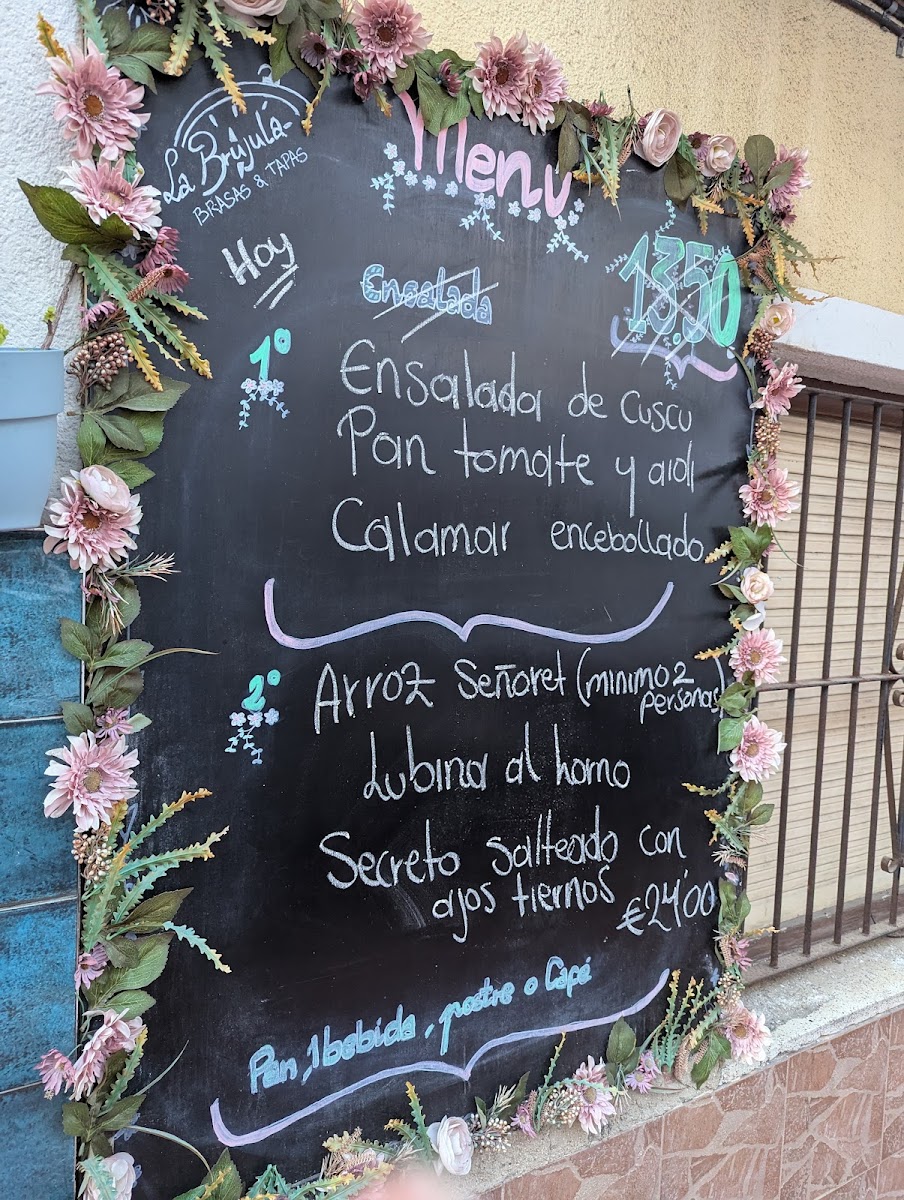 La Brújula
BRASAS & TAPAS
Menu
Hoy
Ensalada
13.50
1º
Ensalada de cuscu
Pan tomate y aioli
Calamar encebollado
2º
Arroz Señoret (minimo 2
personas)
Lubina al horno
Secreto salteado con
ajos tiernos
€24'00
Pan, 1 bebida, postre o Café